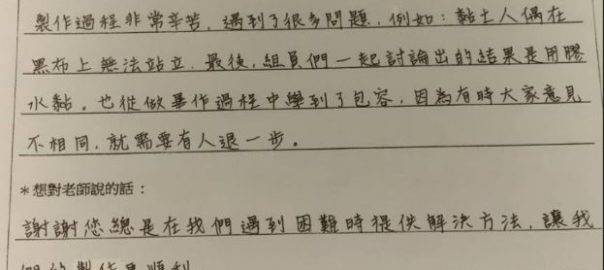 製作過程非常辛苦，遇到了很多問題，例如：黏土人偶在
黑布上無法站立，最後，組員們一起討論出的結果是用膠
水黏。也從做畢作過程中學到了包容，因為有時大家意見
不相同，就需要有人退一步。
*想對老師說的話：
謝謝您總是在我們遇到困難時提供解決方法，讓我
們的製作更順利